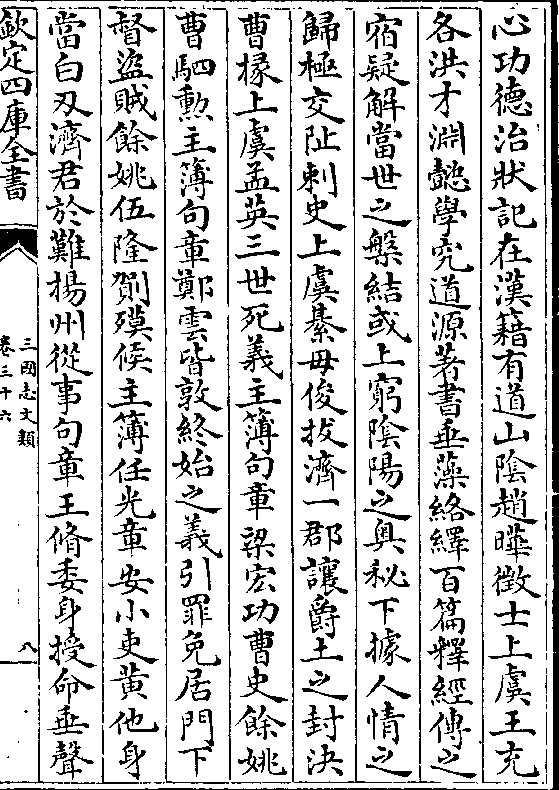 心功德治狀記在漢籍有道山陰趙曄徵士上虞王充
各洪才淵懿學究道源著書垂藻絡繹百篇釋經傳之
宿疑解當世之槃結或上窮陰陽之奧秘下據人情之
歸極交阯刺史上虞綦毋俊拔濟一郡讓爵土之封決
曹掾上虞孟英三世死義主簿句章梁宏功曹史餘姚
曹駟勳主簿句章鄭雲皆敦終始之義引罪免居門下
督盜賊餘姚伍隆鄮莫候主簿任光章安小吏黃他身
當白刃濟君於難揚州從事句章王脩委身授命垂聲
欽定四庫全書
三國志文類
卷三十六
八